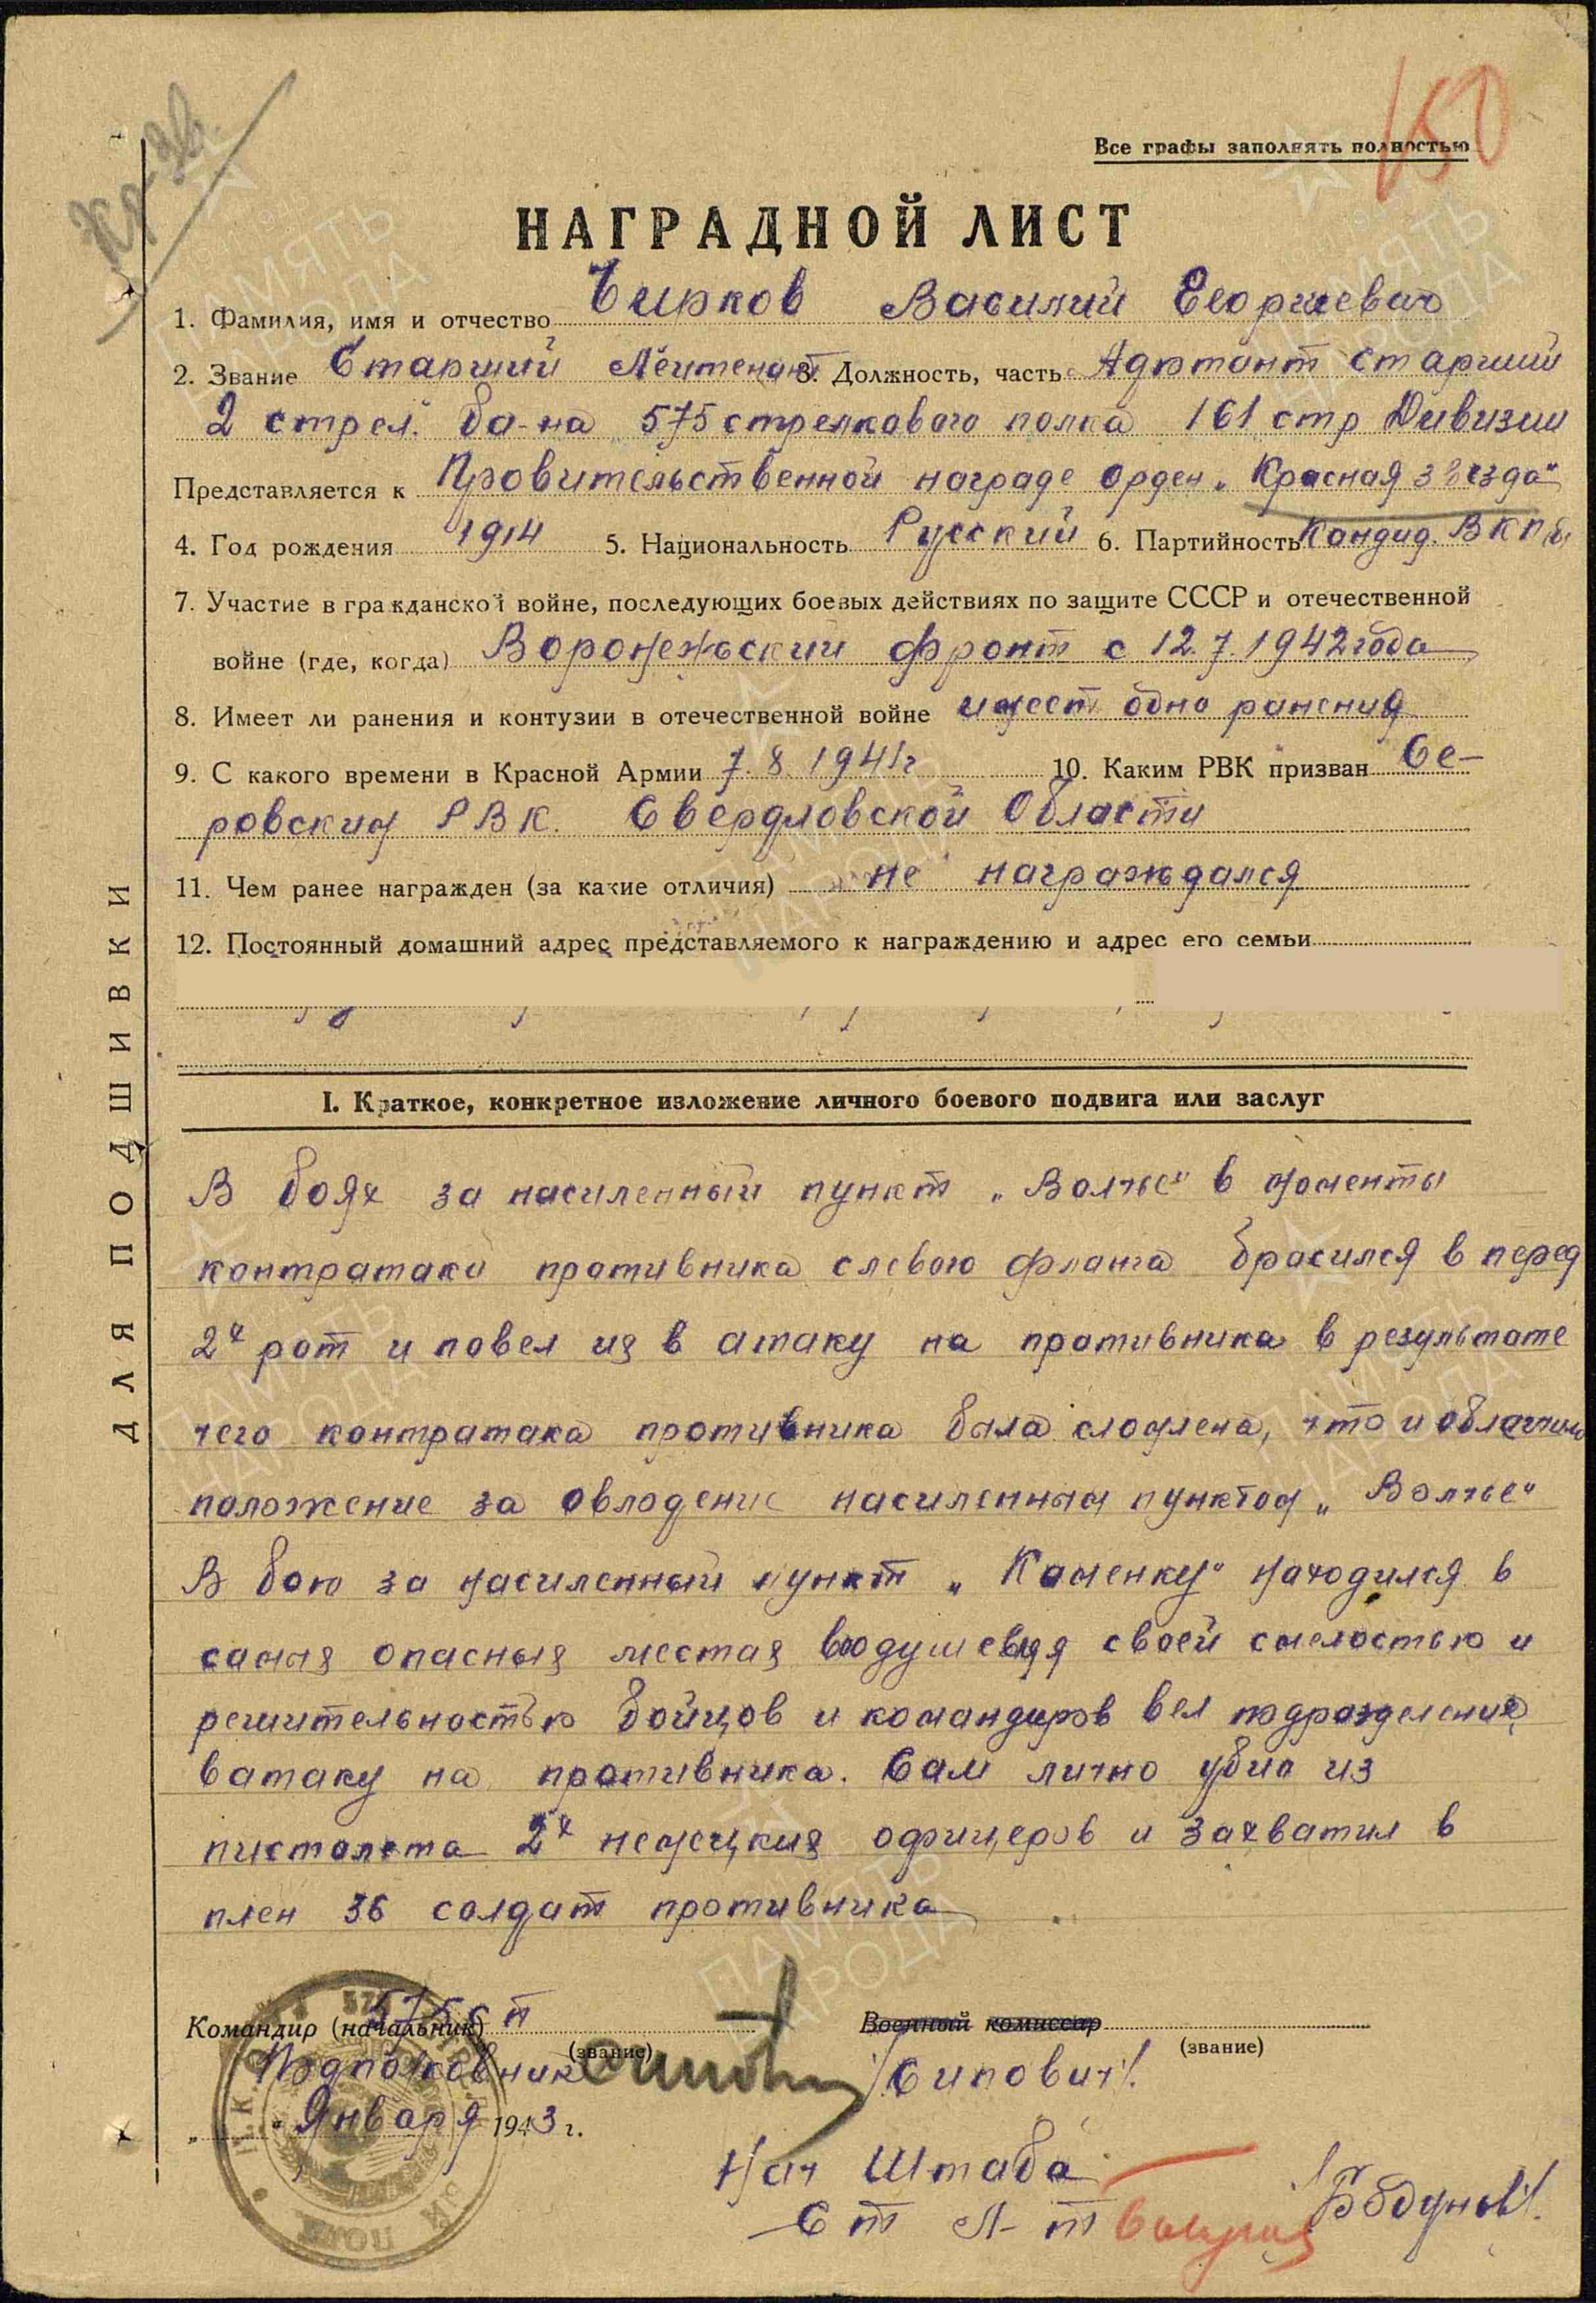 Кр-зв.
150
Все графы заполнять полностью
НАГРАДНОЙ ЛИСТ
1. Фамилия, имя и отчество Чирков Василий Георгиевич
2. Звание Старший Лейтенант 3. Должность, часть Адютант старший
2 стрел. ба-на 575 стрелкового полка 161 стр Дивизии
Представляется к Провительственной награде орден „Красная звезда"
4. Год рождения 1914 5. Национальность Русский 6. Партийность Кандид. ВКП(б)
7. Участие в гражданской войне, последующих боевых действиях по защите СССР и отечественной
войне (где, когда) Воронежский фронт с 12.7.1942 года
8. Имеет ли ранения и контузии в отечественной войне имеет одно ранения
9. С какого времени в Красной Армии 7.8.1941г 10. Каким РВК призван Се-
ровским РВК. Свердловской Области
11. Чем ранее награжден (за какие отличия) не награждался
12. Постоянный домашний адрес представляемого к награждению и адрес его семьи
ДЛЯ ПОДШИВКИ
I. Краткое, конкретное изложение личного боевого подвига или заслуг
В боях за насиленный пункт „Волчье" в моменты
контратаки противника слевого фланга бросился в перед
2х рот и повел их в атаку на противника в результате
чего контратака противника была сломлена, что и облегчило
положение за овлодение насиленным пунктом „Волчье"
В бою за насиленный пункт „Каменку" находился в
самых опасных местах воодушевляя своей смелостью и
решительностью бойцов и командиров вел подразделение
ватаку на противника. Сам лично убил из
пистолета 2х немецких офицеров и захватил в
плен 36 солдат противника
Командир (начальник) 575 сп
Военный комиссар
(звание)
(звание)
Подполковник /Сипович/.
„ " Января 1943 г.
Нач Штаба
Ст Л-т /Бодунов/.
ПАМЯТЬ НАРОДА